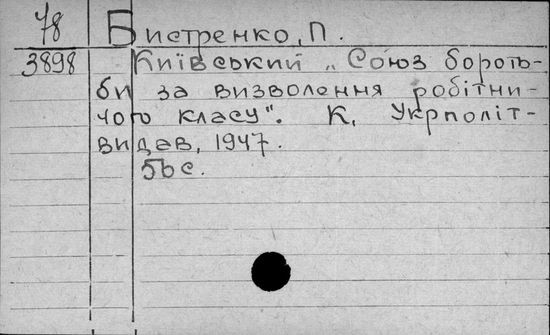 78
Бистренко, П.
3898
Київський „Союз бороть-
би за визволення робітни-
чого класу". К., Укрполіт-
видав, 1947.
56 с.